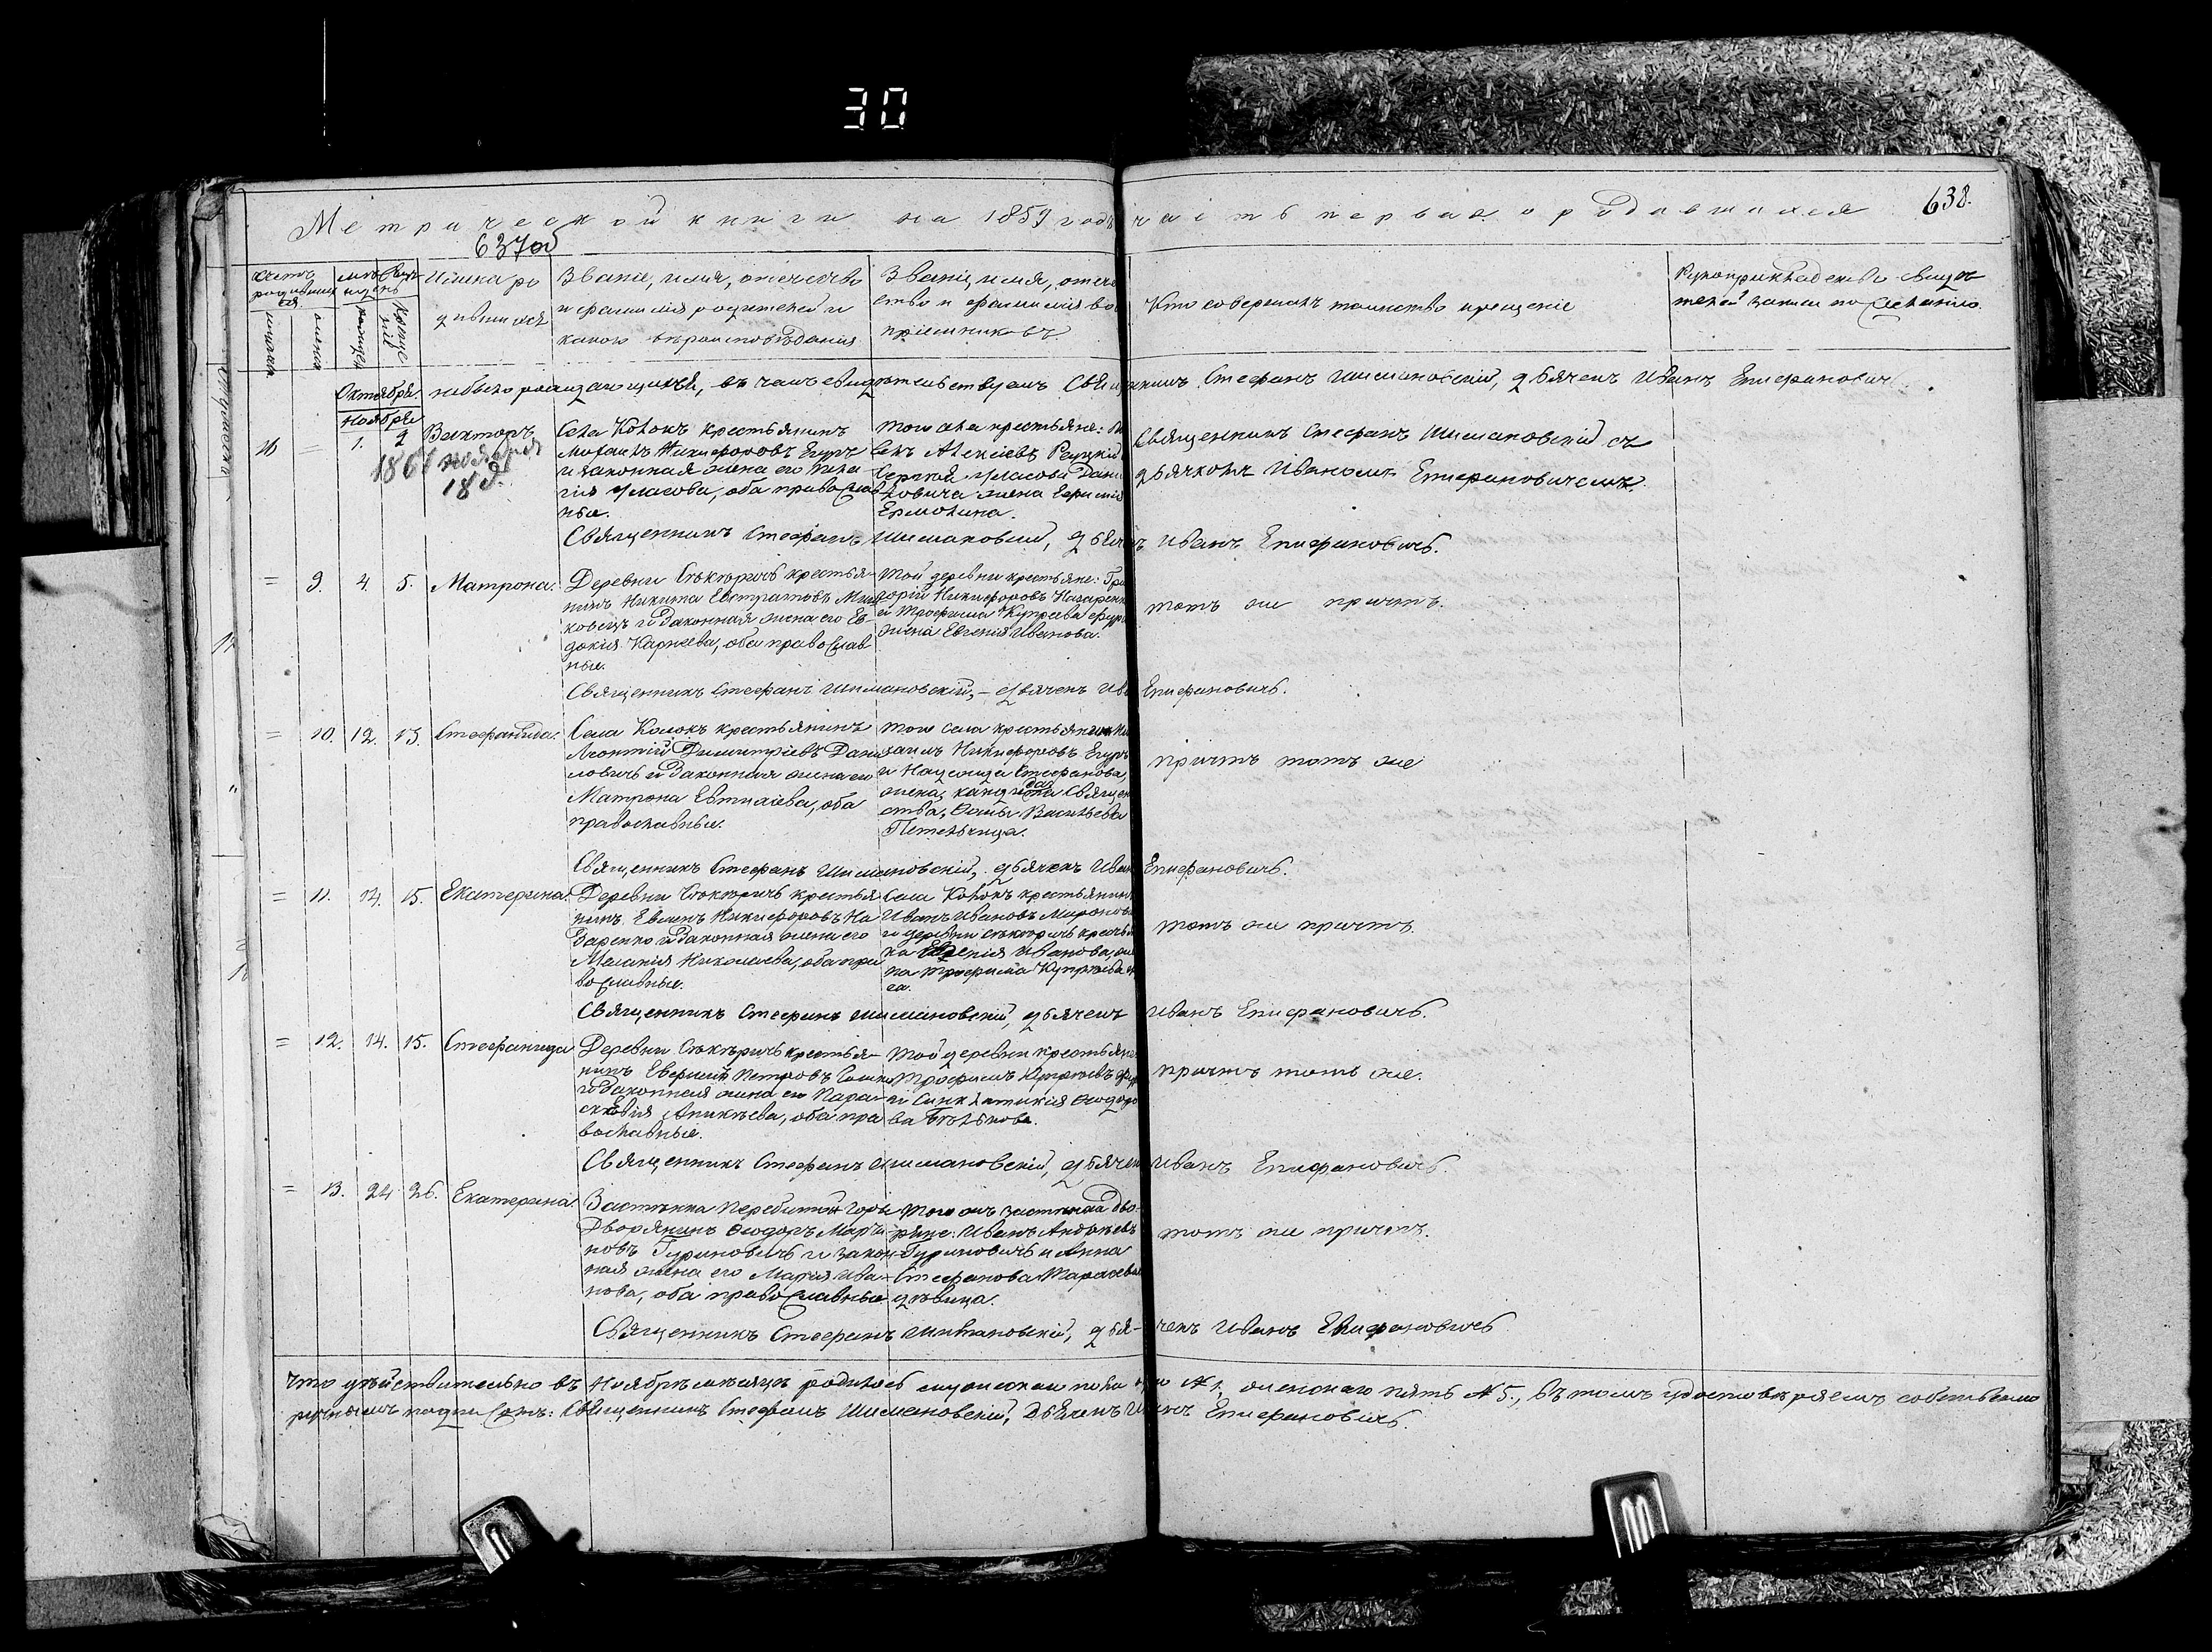 30
Метрической книги на 1859 годъ часть первая о родившихся
638.
637об
Счетъ родившихся
мѣсяцъ и день
мужеска
женска
рожденія
крещенія
Имена родившихся
Званіе, имя, отечество
и фамилія родителей и
какого вѣроисповѣданія
Званіе, имя, отече
ство и фамилія во
пріемниковъ
Кто совершалъ таинство крещеніе
Рукоприкладство свидѣ
телей записи по желанію.
Октября. небыло рождающихся, въ чемъ свидѣтельствуемъ Священникъ Стефанъ Шимановскій, дьячекъ Иванъ Епифановичъ.
Ноября
16 = 1. 2 Викторъ
1861 ноября
18 д.
Села Колокъ крестьянинъ
Михаилъ Никифоровъ Егуръ
и законная жена его Пела
гія Власова, оба православ
ные.
Того села крестьяне:
Алексіевъ Рацкій
Сергѣя Власова Дани
ловича жена Евфимія
Ермолина.
Священникъ Стефанъ Шимановскій съ
дьячкомъ Иваномъ Епифановичемъ.
Священникъ Стефанъ Шимановскій, дьячекъ Иванъ Епифановичъ.
= 9. 4. 5. Матрона.
Деревни Сѣкѣричъ крестья-
нинъ Никита Евстратовъ
и законная жена его Ев-
докія Карнеева, оба православ
ные.
Той деревни крестьяне: Гри
горій Никифоровъ Назаренк
и Трофима Купреева
жена Евгенія Иванова.
тотъ же причтъ.
Священникъ Стефанъ Шимановскій, - дьячекъ Ив Епифановичъ.
= 10. 12. 13. Стефанида.
Села Колокъ крестьянинъ
Леонтій Димитріевъ Дани
ловичъ и законная жена его
Матрона Евтихіева, оба
православные.
Того села крестьянинъ Ми
хаилъ Никифоровъ Егуръ
и Надежда Стефанова,
жена кандидата Священ
ства, Ѳомы Васильева
Петельчица.
причтъ тотъ же
Священникъ Стефанъ Шимановскій, дьячекъ Иван Епифановичъ.
= 11. 14. 15. Екатерина.
Деревни Сѣкѣричъ крестья
нинъ Никифоровъ На
заренко и законная жена его
Меланія Николаева, оба пра
вославные.
Села Колокъ крестьянинъ
Иванъ Ивановъ Миронов
и деревни Сѣкѣричъ крестья
ка Евгенія Иванова, же
на Трофима Купрѣева
тотъ же причтъ.
Священникъ Стефанъ Шимановскій, дьячекъ Иванъ Епифановичъ.
= 12. 14. 15. Стефанида
Деревни Сѣкѣричъ крестья-
нинъ Евфимій Петровъ
и законная жена его Пара-
скевія Аникѣева, оба пра
вославные.
Той деревни крестьяне
Трофимъ Купрѣевъ
и Синклитикія Ѳеодоро
ва Бѣлькова.
причтъ тотъ же.
Священникъ Стефанъ Шимановскій, дьячекъ Иванъ Епифановичъ.
= 13. 24 26. Екатерина.
Застѣнка Перебитой Горы
Дворянинъ Ѳеодоръ Марти
новъ Гуриновичъ и закон-
ная жена его Марія Ива-
нова, оба православные
Того жъ застѣнка дво-
ряне: Иванъ Андрѣевъ
Гуриновичъ и Анна
Стефанова Тарасев
дѣвица.
тотъ же причтъ.
Священникъ Стефанъ Шимановскій, дья-чекъ Иванъ Епифановичъ
Что дѣйствительно въ Ноябрѣ мѣсяцѣ родилось мужескаго пола № 1, женскаго пять № 5., въ томъ удостовѣряемъ собственно
ручнымъ подписомъ: Священникъ Стефанъ Шимановскій, Дьячекъ Иванъ Епифановичъ.